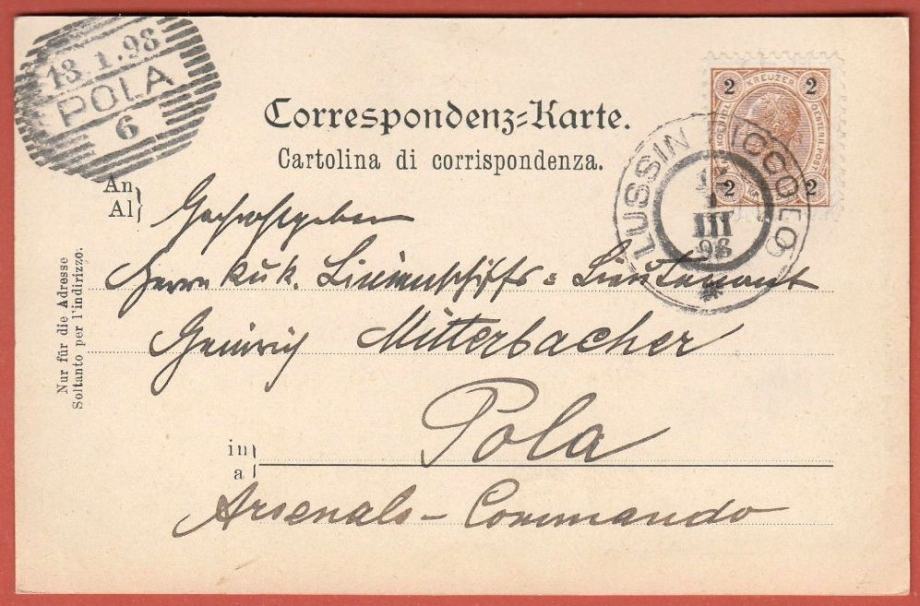 13.1.98
POLA
6
Correspondenz-Karte.
Cartolina di corrispondenza.
2 KREUZER 2
2 2
LUSSIN PICCOLO
III
98
An
Al
Hochwohlgeboren
Herrn k u k. Linienschiffs-Lieutenant
Heinrich Mitterbacher
Nur für die Adresse
Soltanto per l'indirizzo.
in
a
Pola
Arsenals-Commando